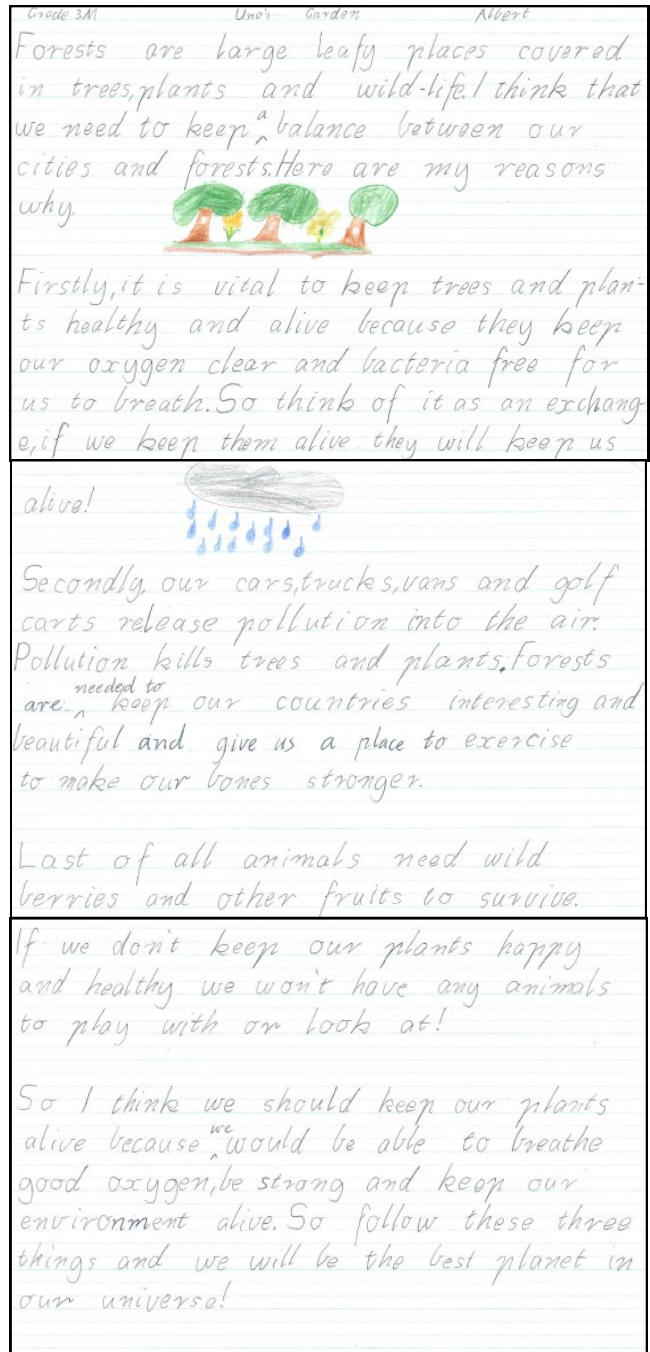 Grade 3M Uno's Garden Albert
Forests are large leafy places covered
in trees, plants and wild-life. I think that
we need to keep a balance between our
cities and forests. Here are my reasons
why.
Firstly, it is vital to keep trees and plan-
ts healthy and alive because they keep
our oxygen clear and bacteria free for
us to breath. So think of it as an exchang-
e, if we keep them alive they will keep us
alive!
Secondly, our cars, trucks, vans and golf
carts release pollution into the air.
Pollution kills trees and plants. Forests
are needed to keep our countries interesting and
beautiful and give us a place to exercise
to make our bones stronger.
Last of all animals need wild
berries and other fruits to survive.
If we don't keep our plants happy
and healthy we won't have any animals
to play with or look at!
So I think we should keep our plants
alive because we would be able to breathe
good oxygen, be strong and keep our
environment alive. So follow these three
things and we will be the best planet in
our universe!